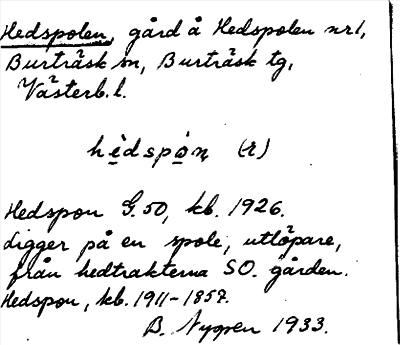 Hedspolen, gård å Hedspolen nr 1,
Burträsk sn, Burträsk tg,
Västerb. l.
hèdspo̱ṇ (r)
Hedspon G. 50, kb. 1926.
Ligger på en spole, utlöpare,
från hedtrakterna SO. gården.
Hedspon, kb. 1911-1857.
B. Nygren 1933.